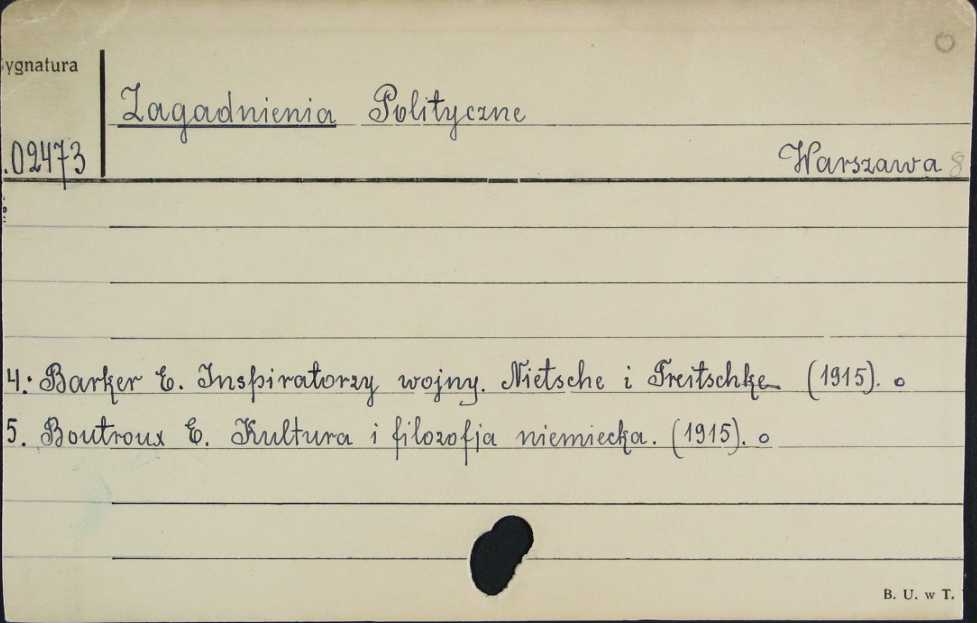 ygnatura
Zagadnienia Polityczne
.02473
Warszawa 8
4. Barker E. Inspiratorzy wojny. Nietsche i Treitschke (1915). o
5. Boutroux E. Kultura i filozofja niemiecka. (1915). o
B. U. w T.